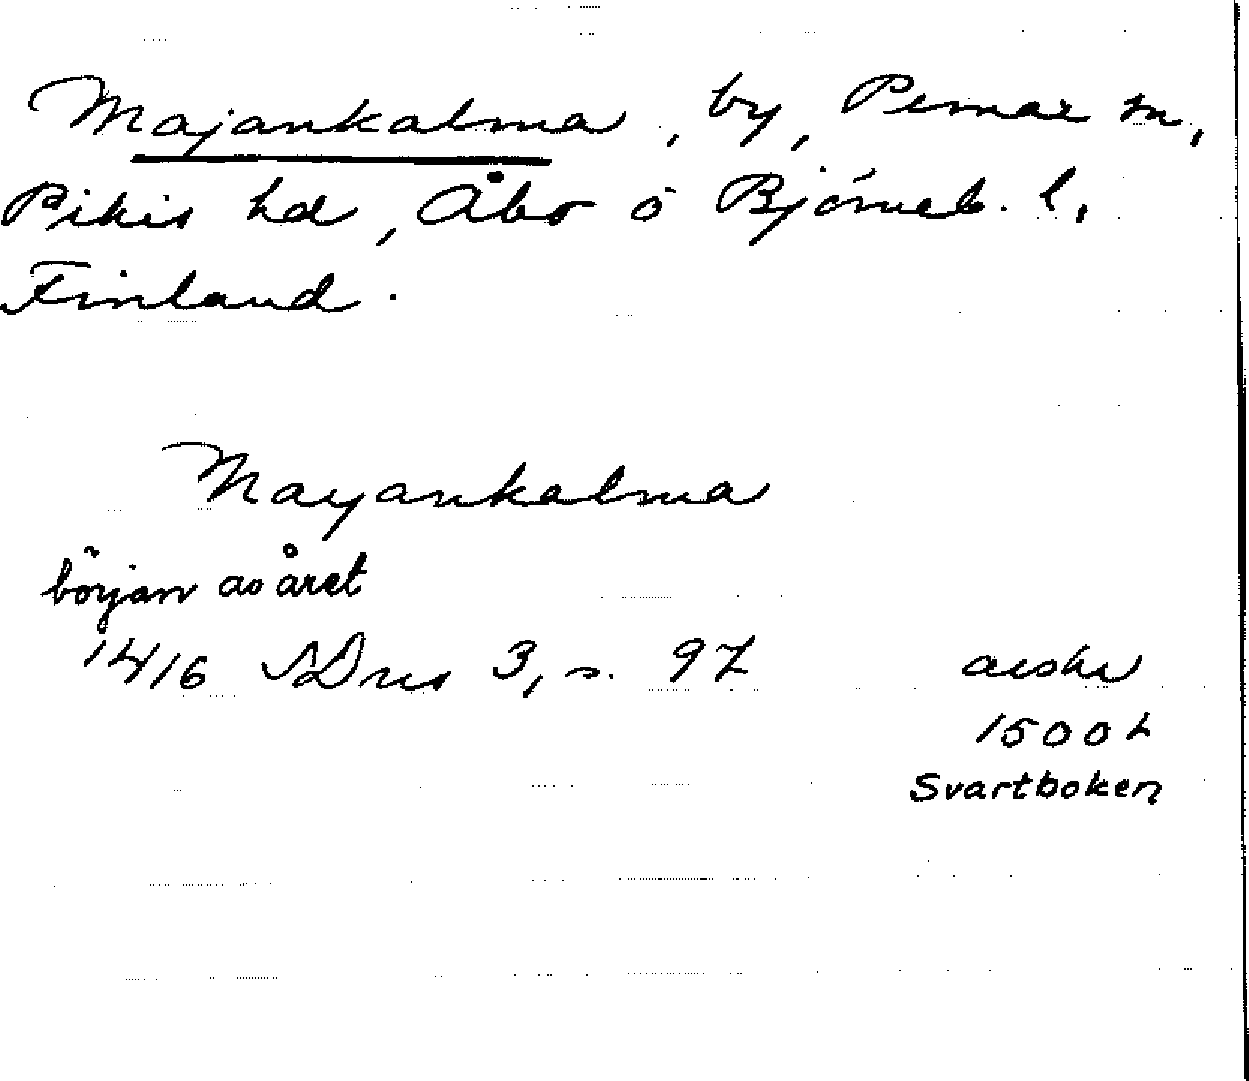 Majankalma, by, Pemar sn,
Pikis hd, Åbo o Björneb. l.
Finland.
Mayankalma
början av året
1416 SDns 3, s. 97 avskr
1500 h
Svartboken